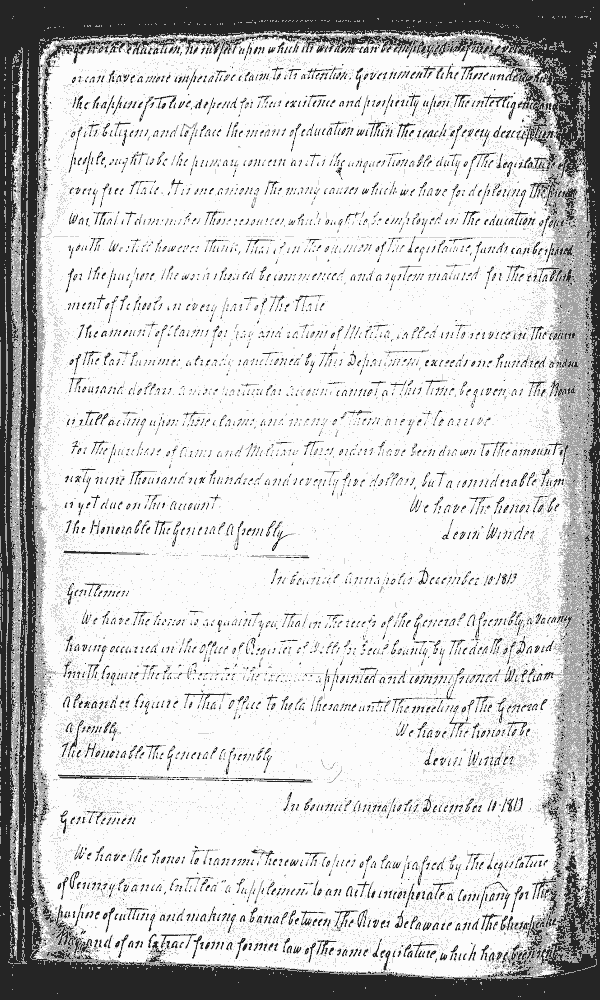 general education, no subject upon which its wisdom can be employed
or can have a more imperative claim to its attention. Governments like those under
the happiness to live, depend for their existence and prosperity upon the intelligence
of its Citizens, and to place the means of education within the reach of every description
people, ought to be the primary concern as it is the unquestionable duty of the Legislature of
every free State. It is one among the many causes which we have for deploring the
War, that it diminishes those resources, which ought to be employed in the education of our
youth We still however think, that if in the opinion of the Legislature, funds can be spared
for the purpose, the work should be commenced, and a system matured for the establish-
ment of Schools in every part of the State
The amount of Claims for pay and rations of Militia, called into service in the course
of the last Summer, already sanctioned by this Department, exceeds one hundred and
thousand dollars, a more particular account cannot at this time, be given, as the Board
is still acting upon those claims, and many of them are yet to arrive.
For the purchase of Arms and Military Stores, orders have been drawn to the amount of
sixty nine thousand six hundred and seventy five dollars, but a considerable sum
is yet due on this account We have the honor to be
The Honorable the General Assembly Levin Winder
In Council Annapolis December 10. 1813
Gentlemen
We have the honor to acquaint you, that in the recess of the General Assembly, a Vacancy
having occurred in the Office of Register of Wills for Cecil County, by the death of David
Smith Esquire the late Register the appointed and commissioned William
Alexander Esquire to that Office to hold the same until the meeting of the General
Assembly. We have the honor to be
The Honorable the General Assembly Levin Winder
In Council Annapolis December 10. 1813
Gentlemen
We have the honor to transmit herewith Copies of a law passed by the Legislature
of Pennsylvania, Entitled "a Supplement to an Act to incorporate a Company for the
purpose of cutting and making a Canal between the River Delaware and the Chesapeake
Bay" and of an Extract from a former law of the same Legislature, which have been